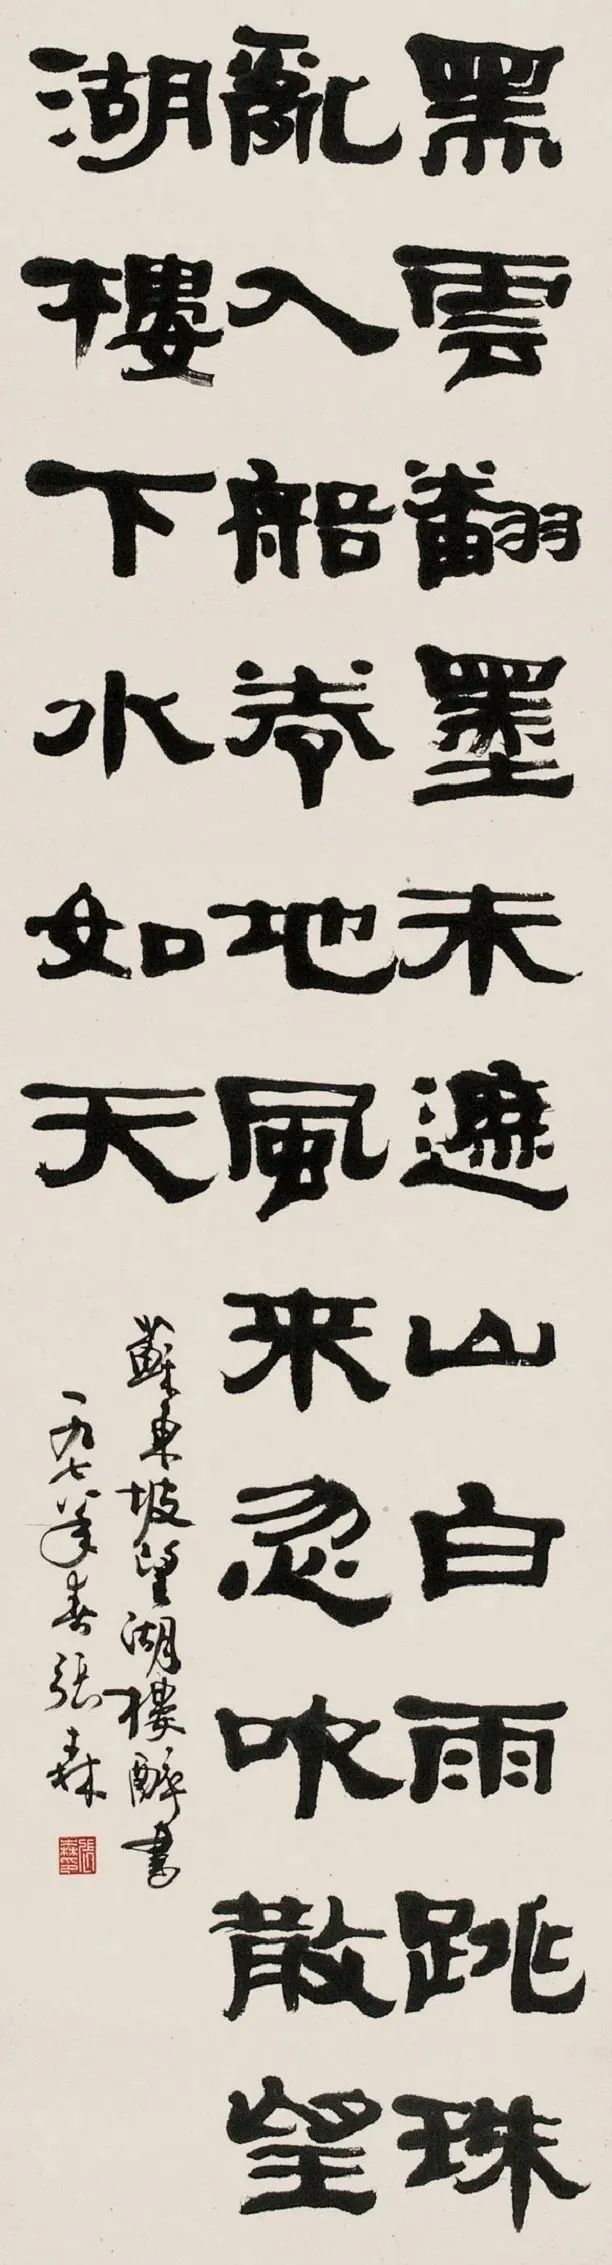 黑雲翻墨未遮山白雨跳珠
亂入船卷地風来忽吹散望
湖樓下水如天
蘇東坡望湖樓醉書
一九七八年春張森
張森印